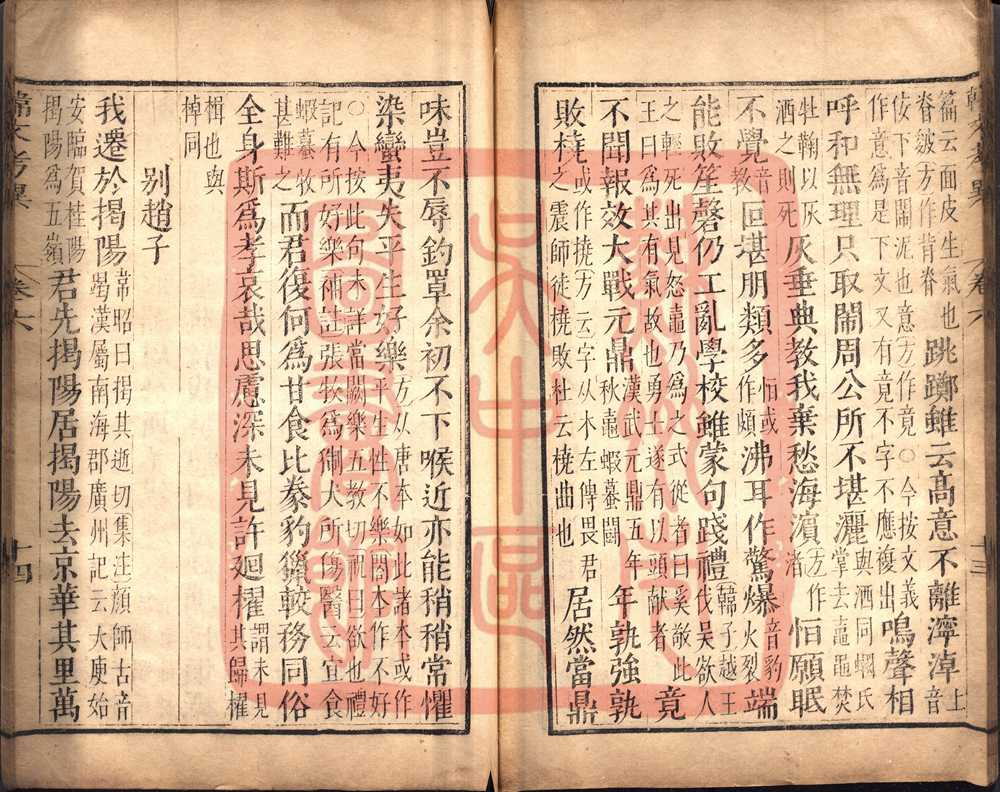 篇云面皮生氣也
脊皴方作背脊
跳躑雖云高意不離濘淖
上
音
佞下音閙泥也意方作竟○今按文義
作意爲是下文又有竟不字不應複出
鳴聲相
呼和無理只取鬧周公所不堪灑
與洒同蟈氏
掌去鼃黽焚
牡蘜以灰
洒之則死
灰垂典教我棄愁海濵
方作
渚
恒願眠
不覺
音
教
回堪朋類多
怕或
作頗
沸耳作驚爆
音豹
火裂
端
能敗笙磬仍工亂學校雖蒙句踐禮
韓子越王
伐吴欲人
之輕死出見怒鼃乃爲之式從者曰奚敬此
王曰爲其有氣故也勇士遂有以頭獻者
竟
不聞報效大戰元鼎
漢武元鼎五年
秋鼃蝦蟇鬬
年孰強孰
敗橈
或作撓方云字从木左傳畏君
之震師徒橈敗杜云橈曲也
居然當鼎
味豈不辱釣罩余初不下喉近亦能稍稍常懼
染蠻夷失平生好樂
方从唐本如此諸本或作
平生性不樂閣本作不好
○今按此句未詳當闕樂五教切祝曰欲也禮
記有所好樂補註張牧爲猘犬所傷醫云宜食
蝦蟇牧
甚難之
而君復何爲甘食比豢豹獵較務同俗
全身斯爲孝哀哉思慮深未見許廻櫂
謂未見
其歸櫂
楫也與
棹同
别趙子
我遷於揭陽
常昭曰揭其逝切集注顔師古音
曷漢屬南海郡廣州記云大庾始
安臨賀桂陽
揭陽爲五嶺
君先揭陽居揭陽去京華其里萬
韓文考異
卷六
十四
蘇州市
吳中區
圖書館